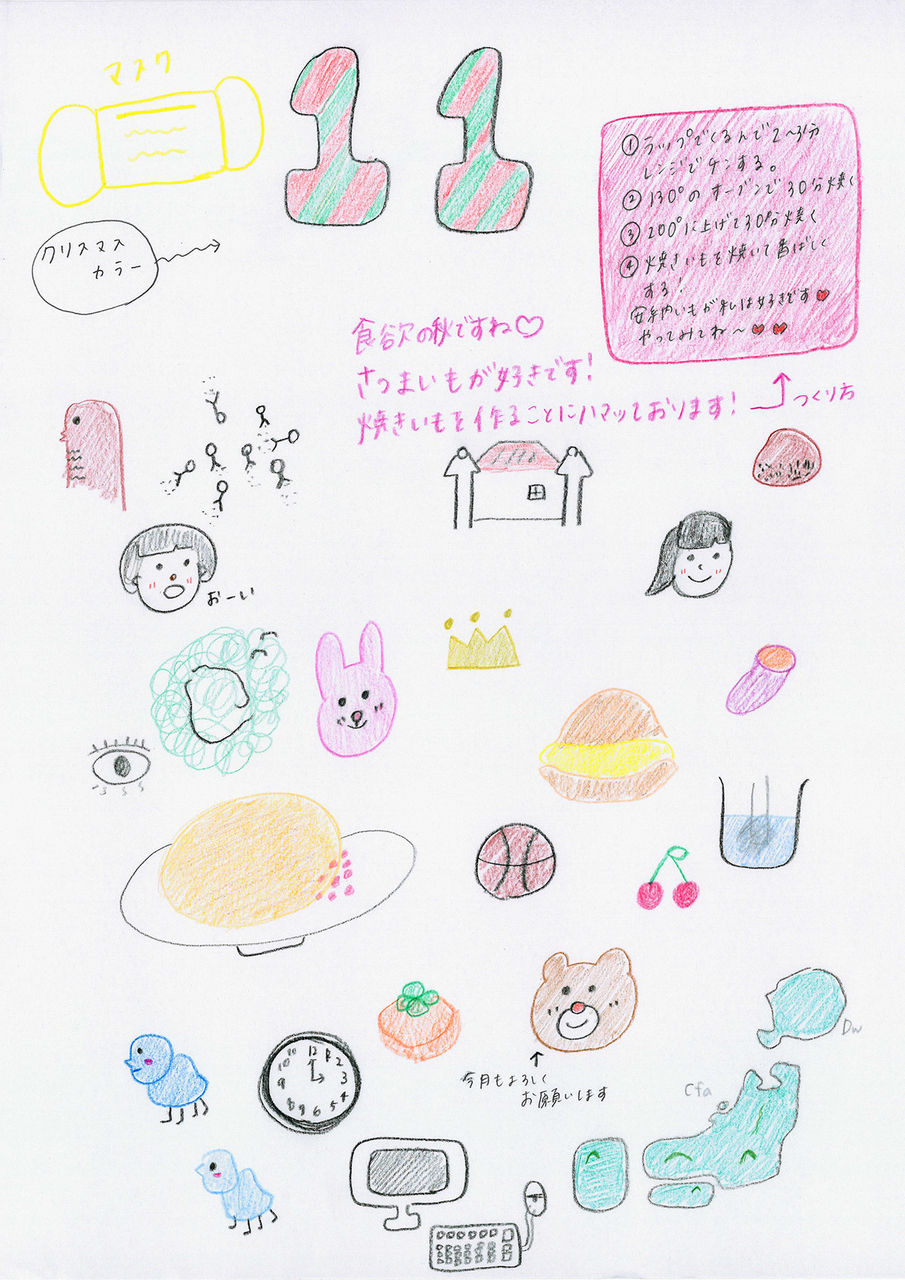 マスク
11
クリスマス
カラー
①ラップでくるんで2〜3分
レンジでチンする。
②130°のオーブンで30分焼く
③200°に上げて30分焼く
④焼きいもを焼いて香ばしく
する!
安納いもが私は好きです♥
やってみてね〜♥♥
食欲の秋ですね♡
さつまいもが好きです!
焼きいもを作ることにハマッております!
つくり方
おーい
12
11 1
10 2
9 3
8 4
7 6 5
今月もよろしく
お願いします
Dw
Cfa